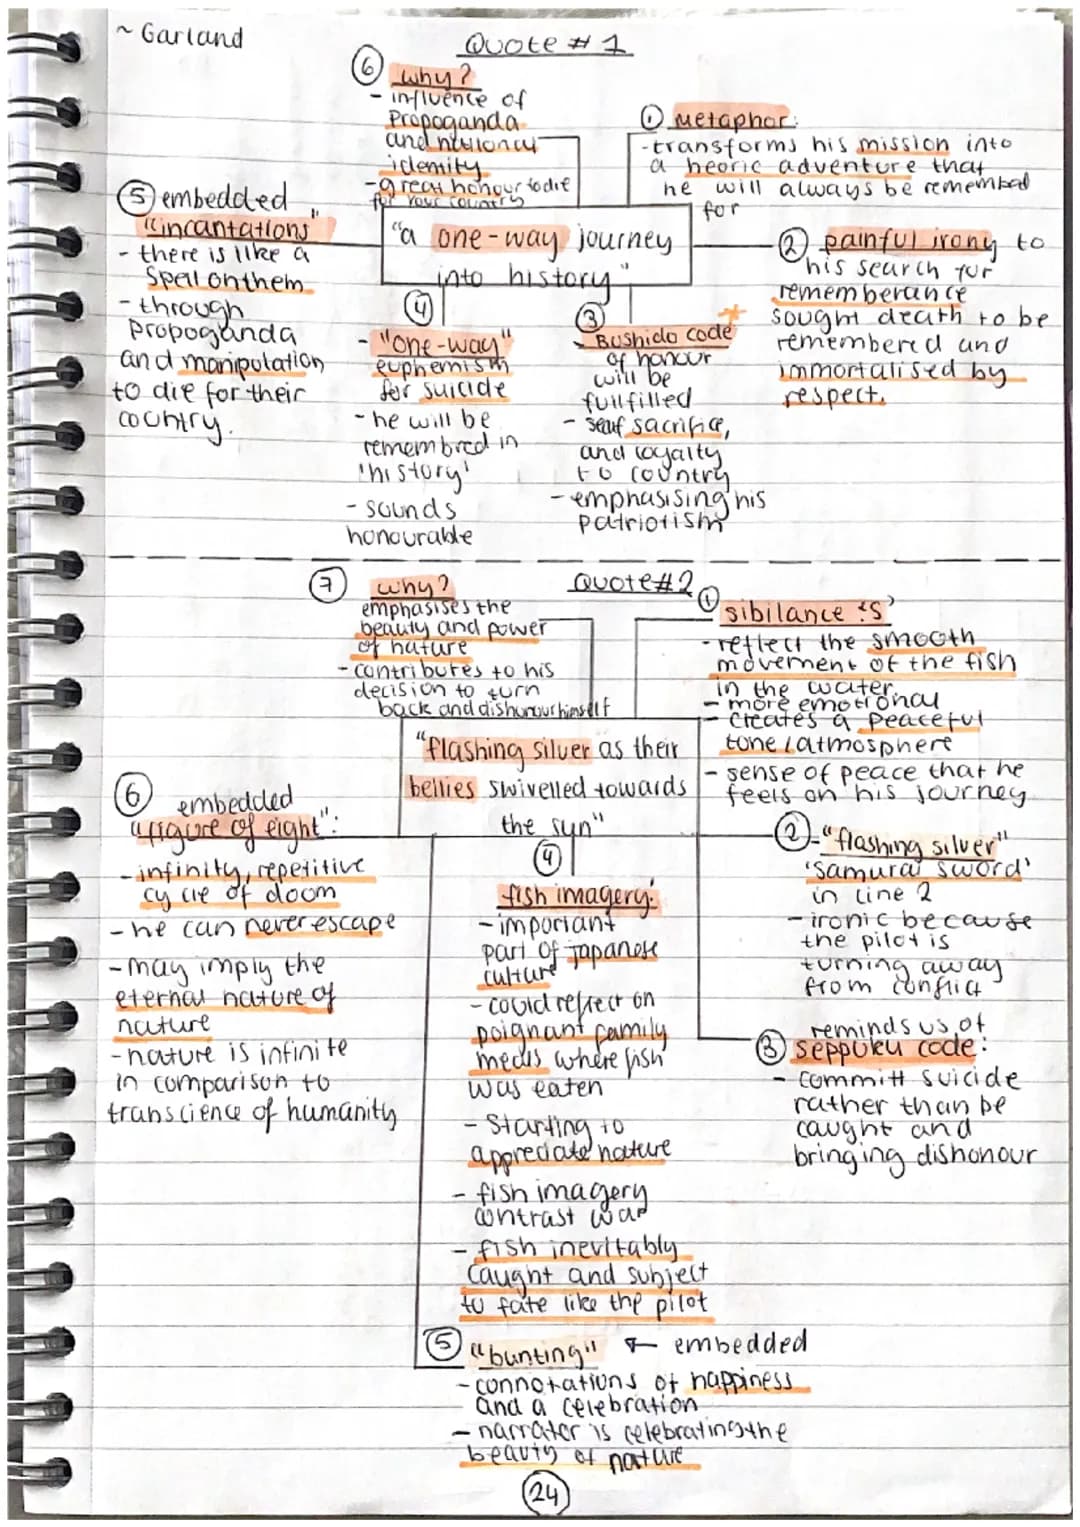 ~ Garland
Quote # 1
6 why?
- influence of
Propoganda
and
idemity
- great honour to die
for your country
1 metaphor:
- transforms his mission into
a heoric adventure that
he will always be remembed
for
5 embedded
"incantations"
- there is like a
spell on them
- through
propoganda
and manipulation
to die for their
country.
"a one-way journey
into history"
2 painful irony to
his search for
rememberance
sought death to be
remembered and
immortalised by
respect.
4
- "One-way"
euphemism
for suicide
- he will be
remembred in
'history'
- sounds
honourable
3
- Bushido code
of honour
will be
fullfilled
- sacrifice,
and loyalty
to country
- emphasising his
patriotism
Quote #2
7 why?
emphasises the
beauty and power
of nature
- contributes to his
decision to turn
back and dishonour himself
1
sibilance 'S'
- reflect the smooth
movement of the fish
in the water.
- more emotional
- creates a peaceful
tone/atmosphere
- sense of peace that he
feels on his journey
"flashing silver as their
bellies swivelled towards
the sun"
6
embedded
"figure of eight":
- infinity, repetitive
cycle of doom
- he can never escape
- may imply the
eternal nature of
nature
- nature is infinite
in comparison to
transcience of humanity
2 - "flashing silver"
'Samurai sword'
in line 2
- ironic because
the pilot is
turning away
from conflict
3 reminds us of
seppuku code:
- committ suicide
rather than be
caught and
bringing dishonour
4
fish imagery:
- important
part of japanese
culture
- could reflect on
poignant family
meals where fish
was eaten
- Starting to
appreciate nature
- fish imagery
contrast war
- fish inevitably
caught and subject
to fate like the pilot
5 "bunting" ← embedded
- connotations of happiness
and a celebration
- narrator is celebrating the
beauty of nature
24